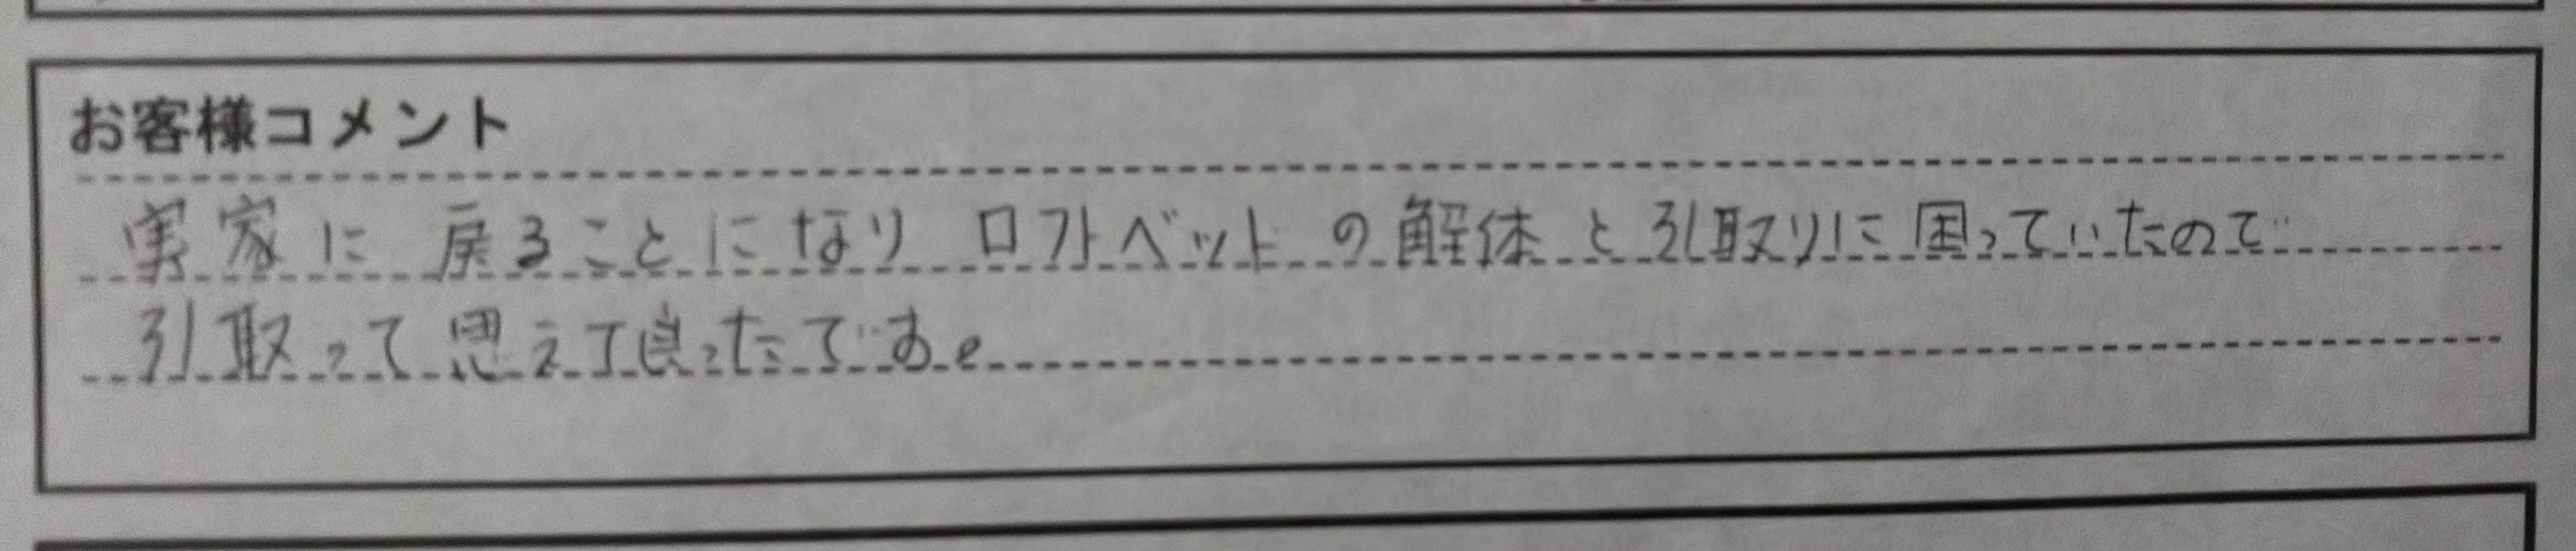 お客様コメント
実家に戻ることになりロフトベットの解体と引取りに困っていたので
引取って思えて良ったです。